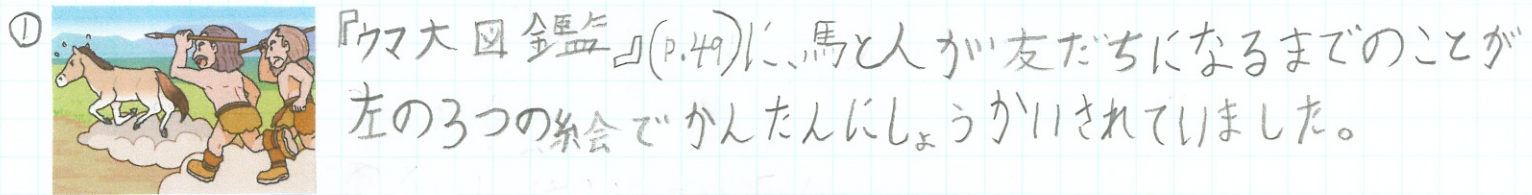 ① 『ウマ大図鑑』(p.49)に、馬と人が友だちになるまでのことが
左の3つの絵でかんたんにしょうかいされていました。